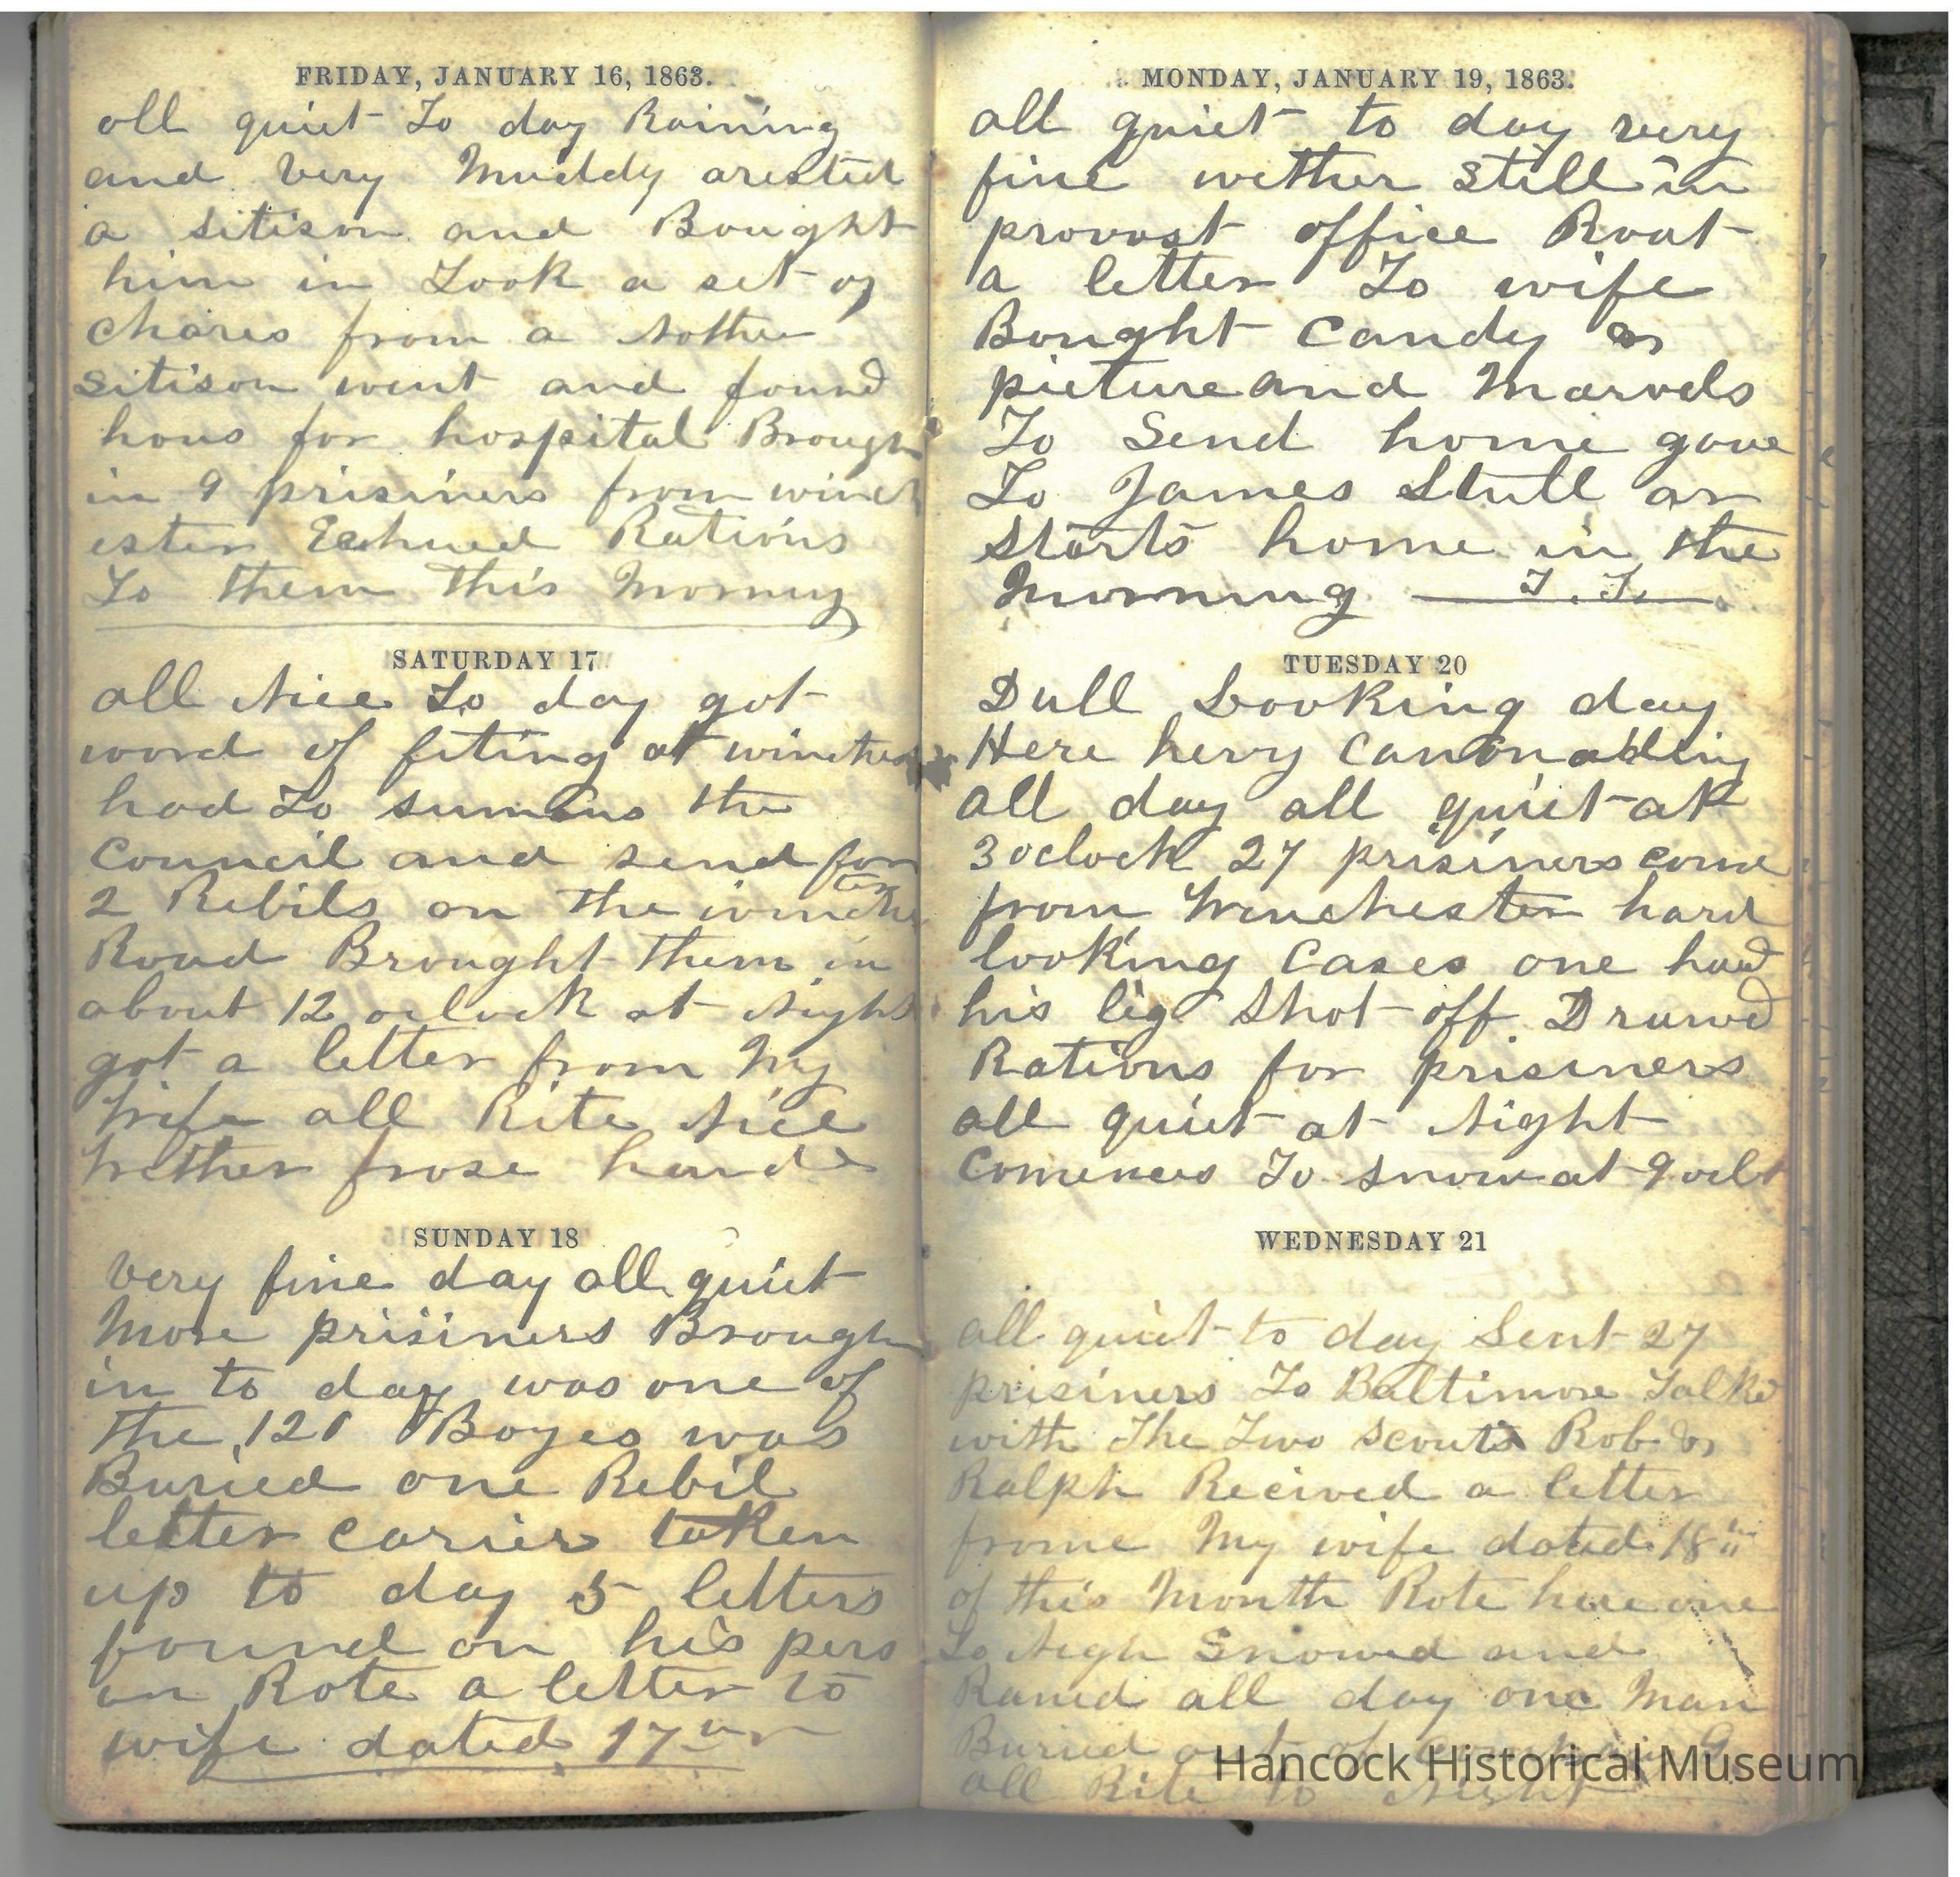 FRIDAY, JANUARY 16, 1863.
all quiet To day Raining
and very Muddy arested
a sitison and Bought
him in Took a set of
chares from a nother
sitison went and found
hous for hospital Brough
in 9 prisiners from winch
ester Rations
To them this Morning
SATURDAY 17
all Nice To day got
word of fiting at winches
had To sumons the
Council and send for
2 Rebils on the winches
ter
Road Brought them in
about 12 oclock at Night
got a letter from My
Wife all Rite Nice
Wether frose hard
SUNDAY 18
very fine day all quiet
More prisiners Brough
in to day was one of
the 121 Boyes was
Buried one Rebil
letter carier taken
up to day 5 letters
found on his pers
on Rote a letter to
wife dated 17
MONDAY, JANUARY 19, 1863.
all quiet to day very
fine wether still in
provost office Roat
a letter To wife
Bought Candy &
picture and Marvels
To Send home gave
To James Stull as
Starts home in the
Morning T. T.
TUESDAY 20
Dull Looking day
Here hevy Canonading
all day all quiet at
3 oclock 27 prisiners come
from Winchester hard
looking Cases one had
his lig Shot off Drawed
Rations for prisiners
all quiet at Night
Comences To snow at 9 oclk
WEDNESDAY 21
all quiet to day Sent 27
prisiners To Baltimore Talked
with The Two scouts Rob &
Ralph Recived a letter
frome My wife dated 18th
of this Month Rote here one
To Nigh Snowed and
Rained all day one Man
Buried out of company G
all Rite to Night
Hancock Historical Museum